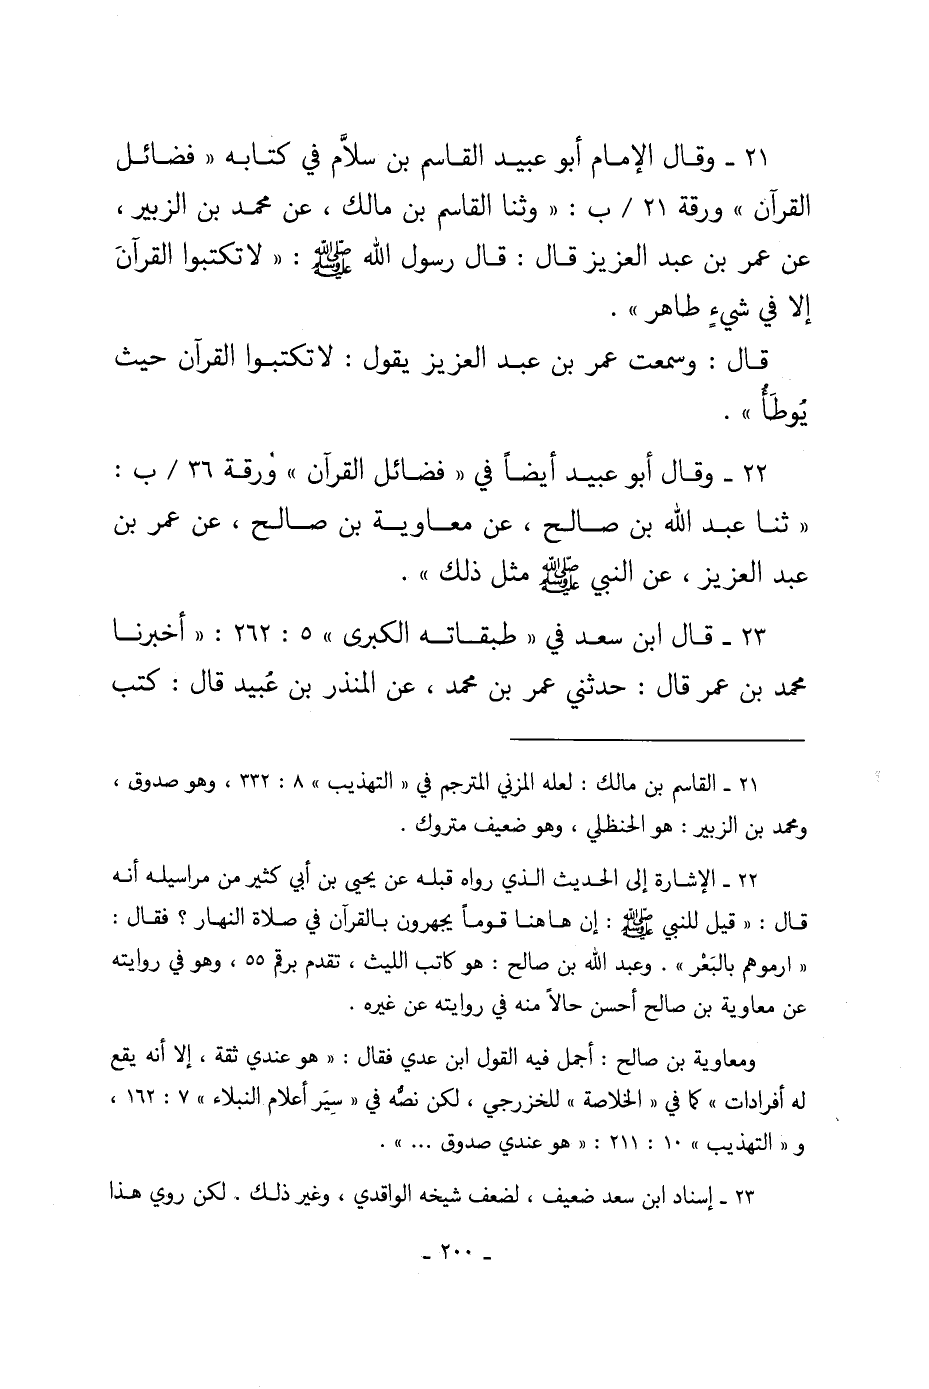 ٢١ ـ وقال الإمام أبو عبيد القاسم بن سلاَّم في كتابه « فضائل
القرآن » ورقة ٢١ / ب : « وثنا القاسم بن مالك ، عن محمد بن الزبير ،
عن عمر بن عبد العزيز قال : قال رسول الله ﷺ : « لا تكتبوا القرآنَ
إلا في شيءٍ طاهر » .
قال : وسمعت عمر بن عبد العزيز يقول : لا تكتبوا القرآن حيث
يُوطَأُ » .
٢٢ ـ وقال أبو عبيد أيضاً في « فضائل القرآن » ورقة ٣٦ / ب :
« ثنا عبد الله بن صالح ، عن معاوية بن صالح ، عن عمر بن
عبد العزيز ، عن النبي ﷺ مثل ذلك » .
٢٣ ـ قال ابن سعد في « طبقاته الكبرى » ٥ : ٢٦٢ : « أخبرنا
محمد بن عمر قال : حدثني عمر بن محمد ، عن المنذر بن عُبيد قال : كتب
٢١ ـ القاسم بن مالك : لعله المزني المترجم في « التهذيب » ٨ : ٣٣٢ ، وهو صدوق ،
ومحمد بن الزبير : هو الحنظلي ، وهو ضعيف متروك .
٢٢ ـ الإشارة إلى الحديث الذي رواه قبله عن يحيى بن أبي كثير من مراسيله أنه
قال : « قيل للنبي ﷺ : إن هاهنا قوماً يجهرون بالقرآن في صلاة النهار ؟ فقال :
« ارموهم بالبَعْر » . وعبد الله بن صالح : هو كاتب الليث ، تقدم برقم ٥٥ ، وهو في روايته
عن معاوية بن صالح أحسن حالاً منه في روايته عن غيره .
ومعاوية بن صالح : أجمل فيه القول ابن عدي فقال : « هو عندي ثقة ، إلا أنه يقع
له أفرادات » كما في « الخلاصة » للخزرجي ، لكن نصُّه في « سِيَر أعلام النبلاء » ٧ : ١٦٢ ،
و « التهذيب » ١٠ : ٢١١ : « هو عندي صدوق ... » .
٢٣ ـ إسناد ابن سعد ضعيف ، لضعف شيخه الواقدي ، وغير ذلك . لكن روي هذا
ـ ٢٠٠ ـ